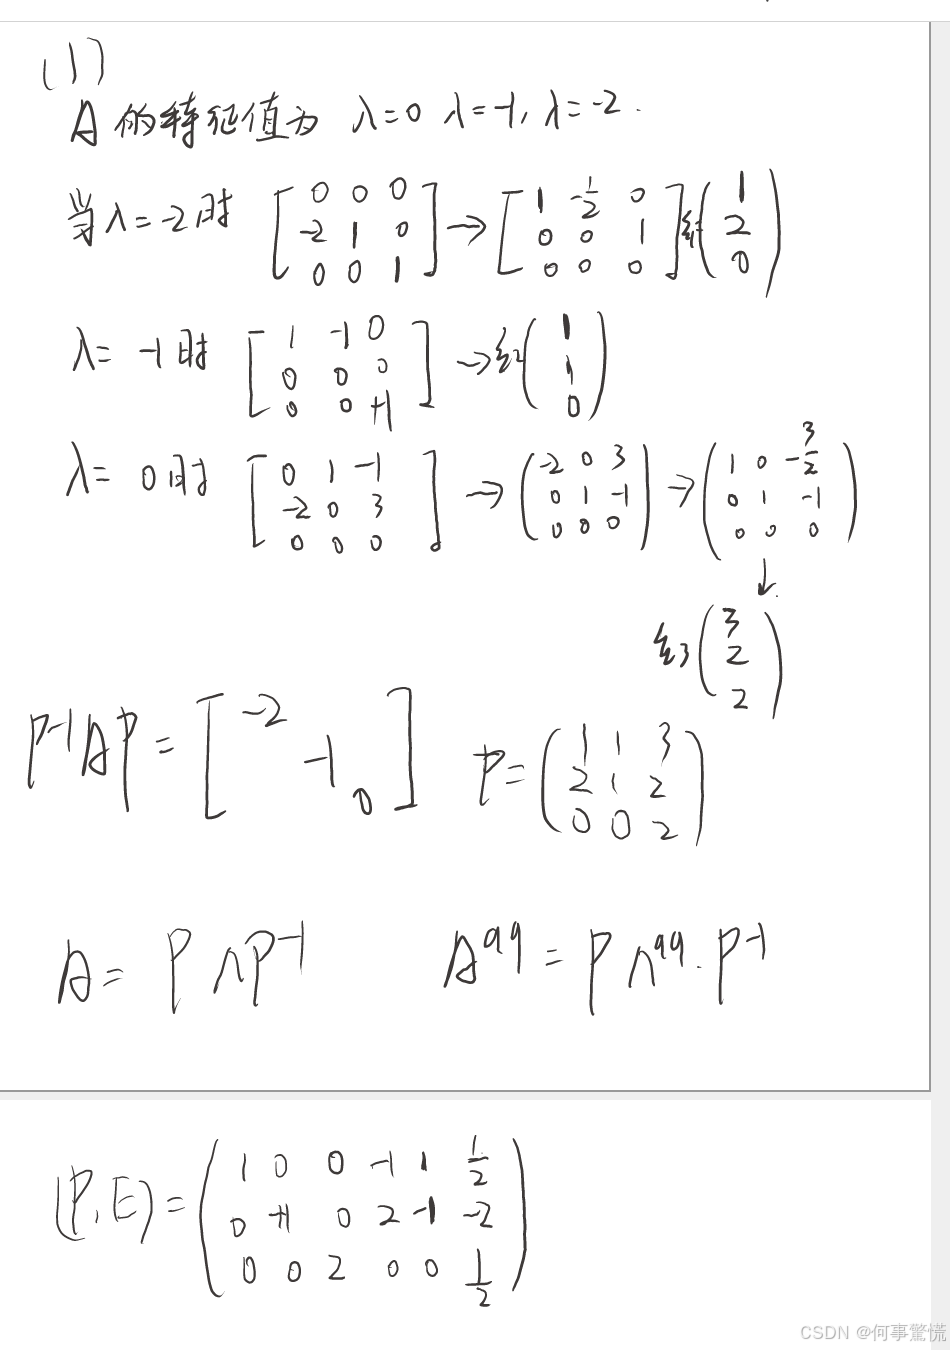 (1)
A的特征值为 λ=0 λ=-1, λ=-2.
当λ=-2时 [0 0 0; -2 1 0; 0 0 1] → [1 -1/2 0; 0 0 1; 0 0 0] ξ1 (1; 2; 0)
λ= -1时 [1 -1 0; 0 0 0; 0 0 +1] → ξ2 (1; 1; 0)
λ= 0时 [0 1 -1; -2 0 3; 0 0 0] → (-2 0 3; 0 1 -1; 0 0 0) → (1 0 -3/2; 0 1 -1; 0 0 0)
↓
ξ3 (3; 2; 2)
P⁻¹AP = [-2 -1 0] P= (1 1 3; 2 1 2; 0 0 2)
A= PΛP⁻¹ A⁹⁹ = PΛ⁹⁹·P⁻¹
(P,E) = (1 0 0 -1 1 1/2; 0 +1 0 2 -1 -2; 0 0 2 0 0 1/2)
CSDN @何事驚慌